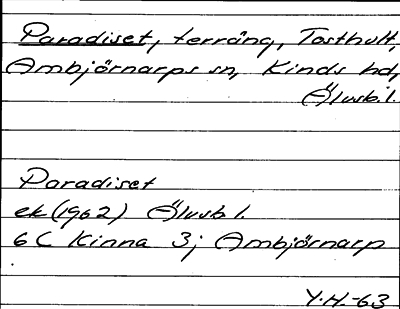 Paradiset, terräng, Tosthult,
Ambjörnarps sn, Kinds hd,
Älvsb.l.
Paradiset
ek (1962) Älvsb l.
6 C Kinna 3j Ambjörnarp
Y.H.-63